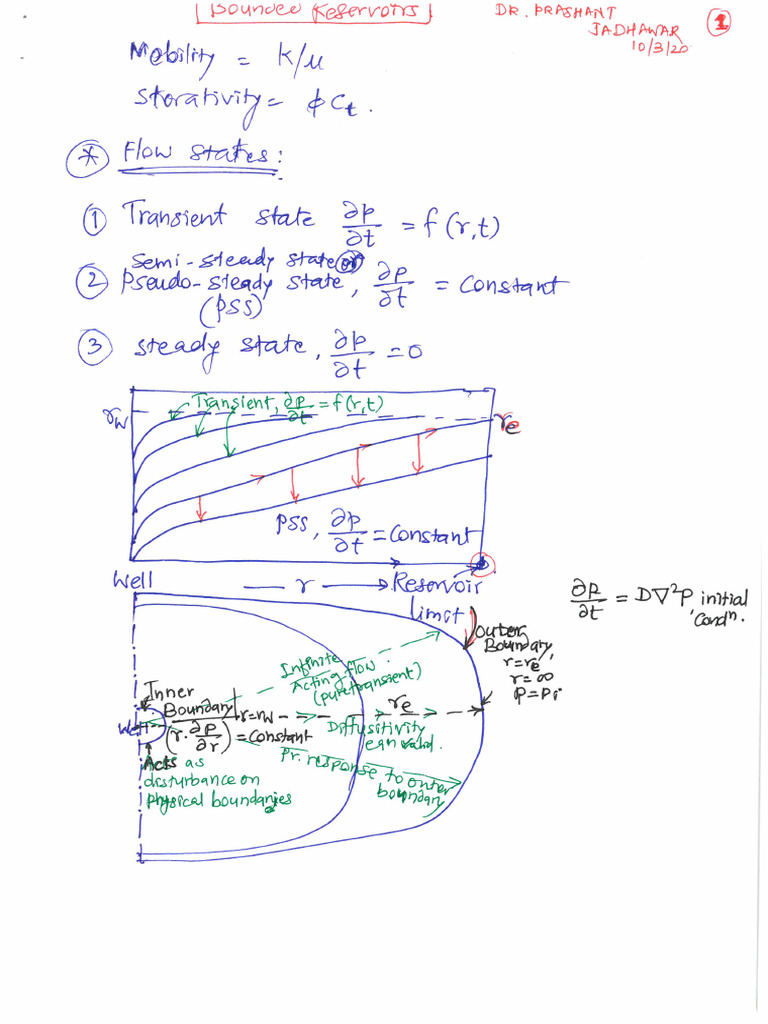 Bounded Reservoirs
DR. PRASHANT
JADHAWAR
10/3/20
1
Mobility = K/μ
Storativity = ϕCt.
* Flow states:
① Transient state ∂p/∂t = f(r,t)
Semi-steady state or
② Pseudo-steady state, ∂p/∂t = Constant
(PSS)
③ Steady state, ∂p/∂t = 0
Transient, ∂p/∂t = f(r,t)
rw
re
PSS, ∂p/∂t = Constant
Well
r
Reservoir
limit
∂p/∂t = D∇²P, initial
condn.
outer
Boundary,
r=re,
r=∞
P=Pi
Infinite
Acting flow
(pure transient)
Inner
Boundary
r=rw
re
Well
(r.∂p/∂r) = Constant
Diffusitivity
eqn valid.
Acts as
disturbance on
physical boundaries
Pr. response to outer
boundary